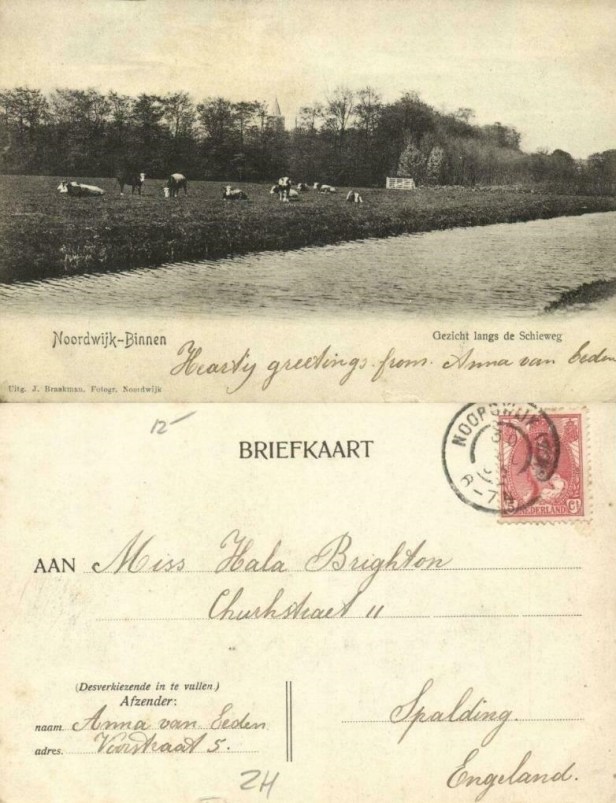 Noordwijk-Binnen
Gezicht langs de Schieweg
Hearty greetings from Anna van Eeden
Uitg. J. Braakman, Fotogr. Noordwijk
12-
BRIEFKAART
NOORDWIJK
6-7
NEDERLAND
AAN Miss Hala Brighton
Churkstraet 11
(Desverkiezende in te vullen.)
Afzender:
naam Anna van Eeden
adres. Voorstraat 5.
Spalding.
Engeland.
ZH